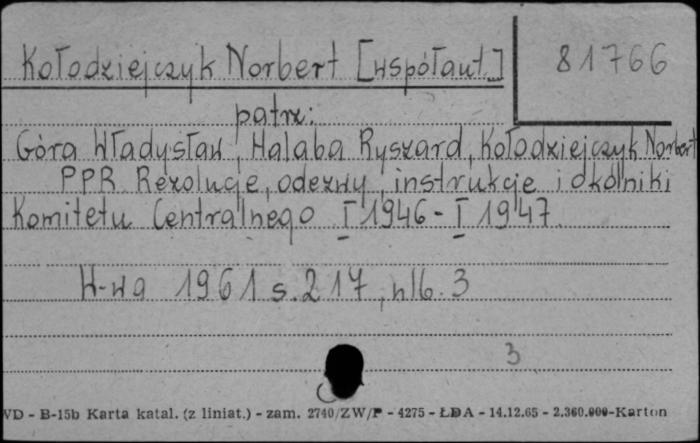 Kołodziejczyk Norbert [współaut.]
81766
patrz:
Góra Władysław, Halaba Ryszard, Kołodziejczyk Norbert
PPR Rezolucje, odezwy, instrukcje i okólniki
Komitetu Centralnego I 1946 - I 1947.
W-wa 1961 s. 217, nlb. 3
3
VD - B-15b Karta katal. (z liniat.) - zam. 2740/ZW/P - 4275 - ŁDA - 14.12.65 - 2.360.000-Karton